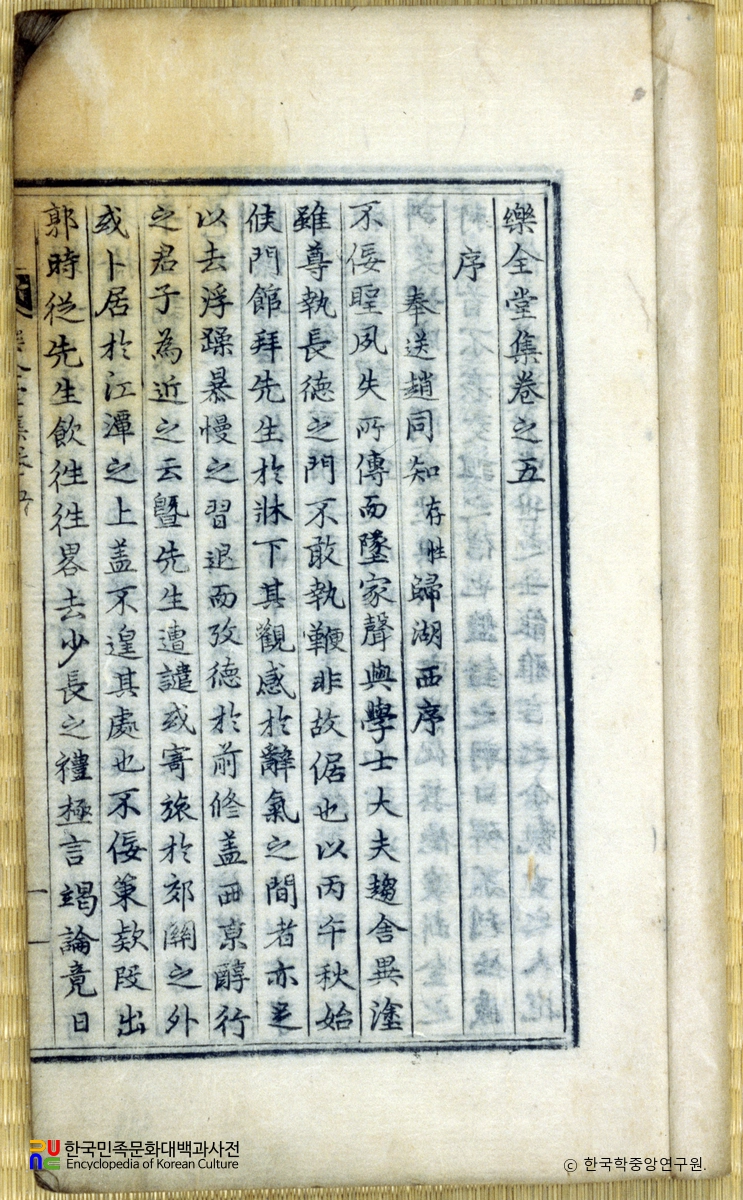 樂全堂集卷之五
序
奉送趙同知存性歸湖西序
不佞聖夙失所傳而墜家聲與學士大夫趨舍異塗
雖尊執長德之門不敢執鞭非故倨也以丙午秋始
伕門館拜先生於牀下其觀感於辭氣之間者亦足
以去浮躁暴慢之習退而攷德於前修盖西京醇行
之君子為近之云曁先生遭譴或寄旅於郊關之外
或卜居於江潭之上盖不遑其處也不佞策欵段出
郭時從先生飲徃徃畧去少長之禮極言竭論竟日
한국민족문화대백과사전
Encyclopedia of Korean Culture
ⓒ 한국학중앙연구원.